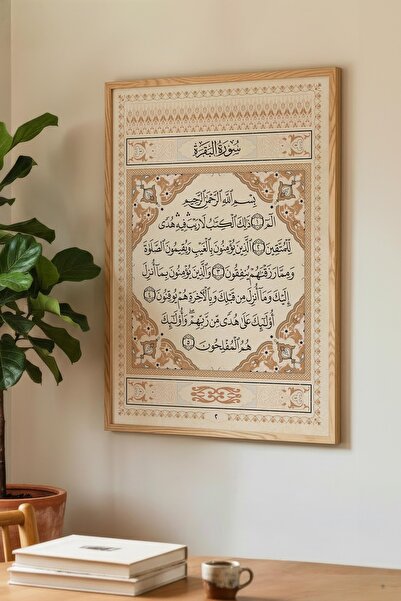 سُورَةُ البَقَرَةِ
بِسْمِ اللَّهِ الرَّحْمَٰنِ الرَّحِيمِ
الٓمٓ ١ ذَٰلِكَ الْكِتَٰبُ لَا رَيْبَ ۛ فِيهِ ۛ هُدًى
لِّلْمُتَّقِينَ ٢ الَّذِينَ يُؤْمِنُونَ بِالْغَيْبِ وَيُقِيمُونَ الصَّلَوٰةَ
وَمِمَّا رَزَقْنَٰهُمْ يُنفِقُونَ ٣ وَالَّذِينَ يُؤْمِنُونَ بِمَا أُنزِلَ
إِلَيْكَ وَمَا أُنزِلَ مِن قَبْلِكَ وَبِالْآخِرَةِ هُمْ يُوقِنُونَ ٤
أُولَٰئِكَ عَلَىٰ هُدًى مِّن رَّبِّهِمْ ۖ وَأُولَٰئِكَ
هُمُ الْمُفْلِحُونَ ٥
٢